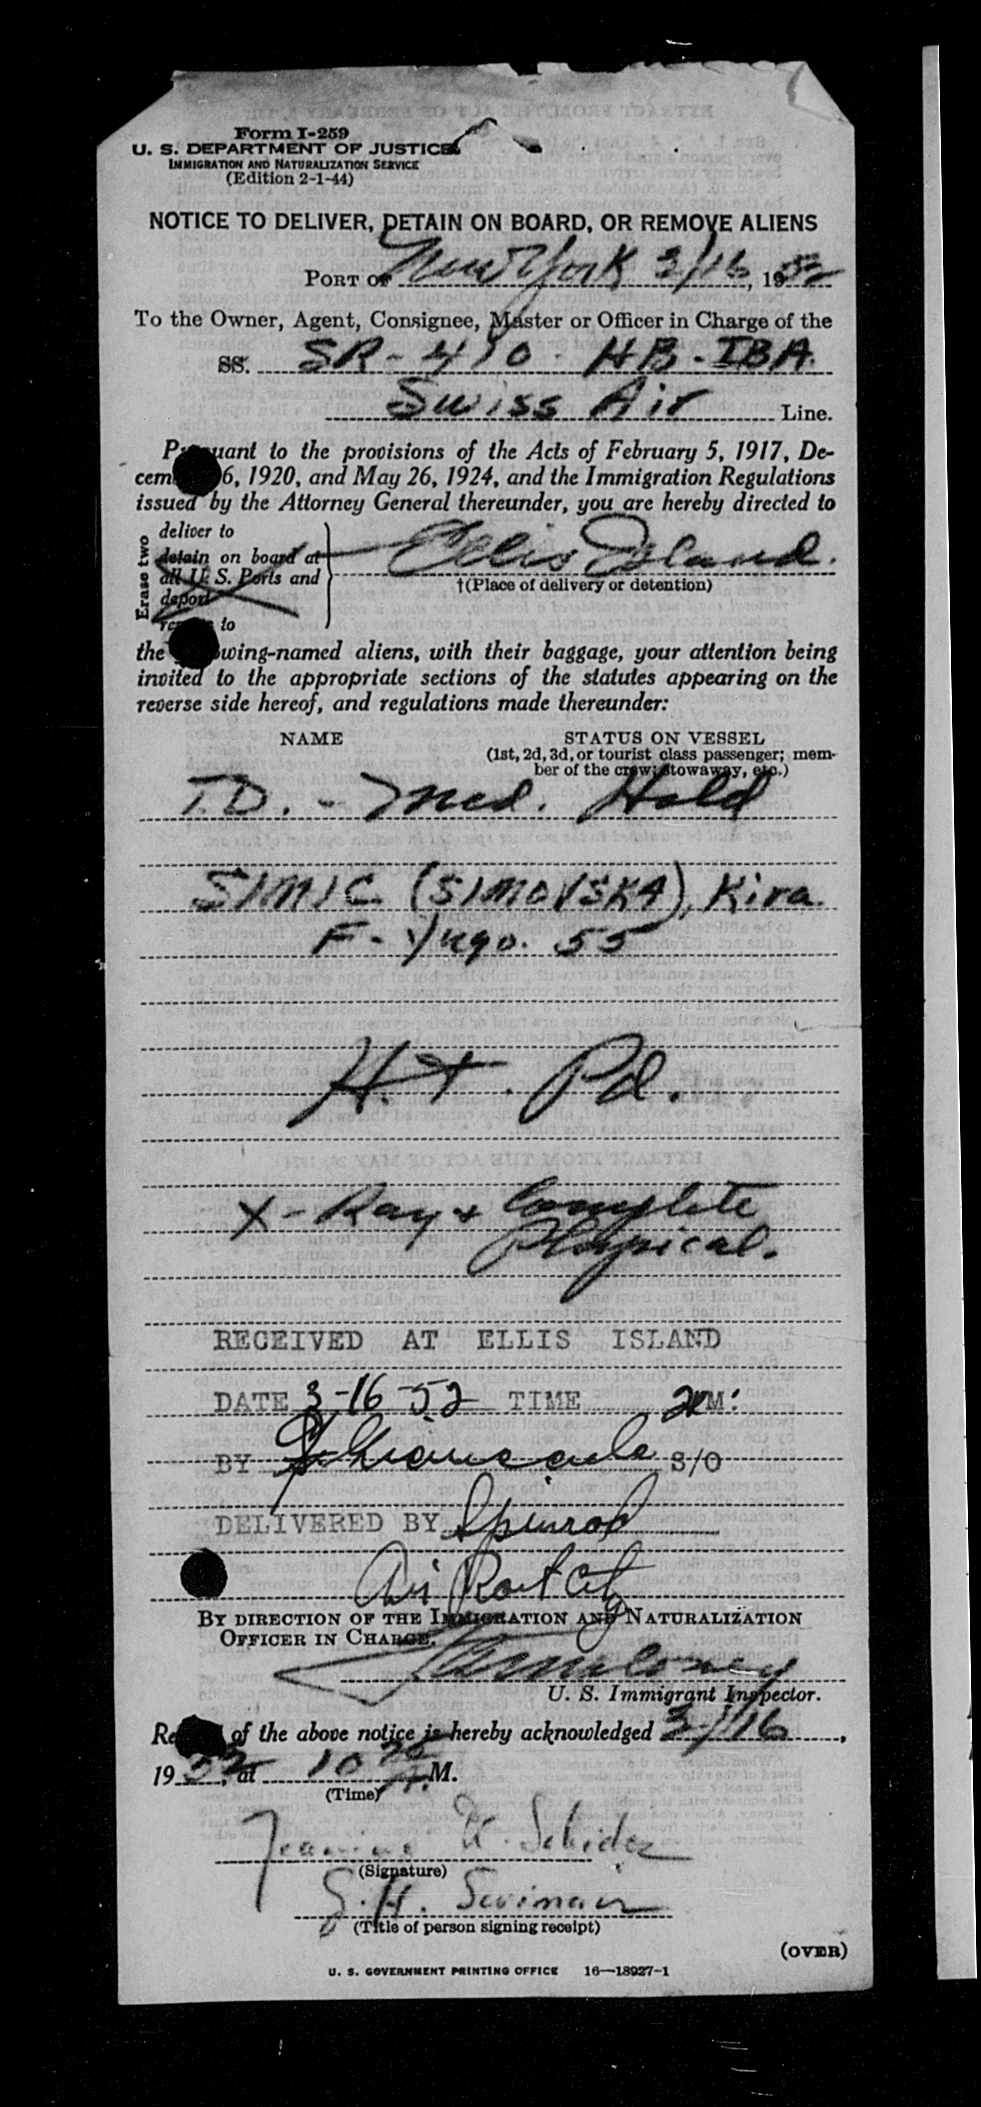 Form I-259
U. S. DEPARTMENT OF JUSTICE
IMMIGRATION AND NATURALIZATION SERVICE
(Edition 2-1-44)
NOTICE TO DELIVER, DETAIN ON BOARD, OR REMOVE ALIENS
PORT OF New York 3/16, 1952
To the Owner, Agent, Consignee, Master or Officer in Charge of the
SS. SR-410 - HB-IBA.
Swiss Air Line.
Pursuant to the provisions of the Acts of February 5, 1917, De-
cem 6, 1920, and May 26, 1924, and the Immigration Regulations
issued by the Attorney General thereunder, you are hereby directed to
Erase two
deliver to
detain on board at
all U. S. Ports and
deport
to
Ellis Island.
†(Place of delivery or detention)
the wing-named aliens, with their baggage, your attention being
invited to the appropriate sections of the statutes appearing on the
reverse side hereof, and regulations made thereunder:
NAME STATUS ON VESSEL
(1st, 2d, 3d, or tourist class passenger; mem-
ber of the crew; stowaway, etc.)
T.D. - Med. Hold
SIMIC (SIMOVSKA), Kira.
F - Yugo. 55
H.T. Pd.
X-Ray + Complete
Physical.
RECEIVED AT ELLIS ISLAND
DATE 3-16-52 TIME 2 M:
BY S/O
DELIVERED BY Spinrod
Air Port City
BY DIRECTION OF THE IMMIGRATION AND NATURALIZATION
OFFICER IN CHARGE.
U. S. Immigrant Inspector.
Re of the above notice is hereby acknowledged 3/16,
1952, at 10 M.
(Time)
(Signature)
(Title of person signing receipt)
(OVER)
U. S. GOVERNMENT PRINTING OFFICE 16—18927-1